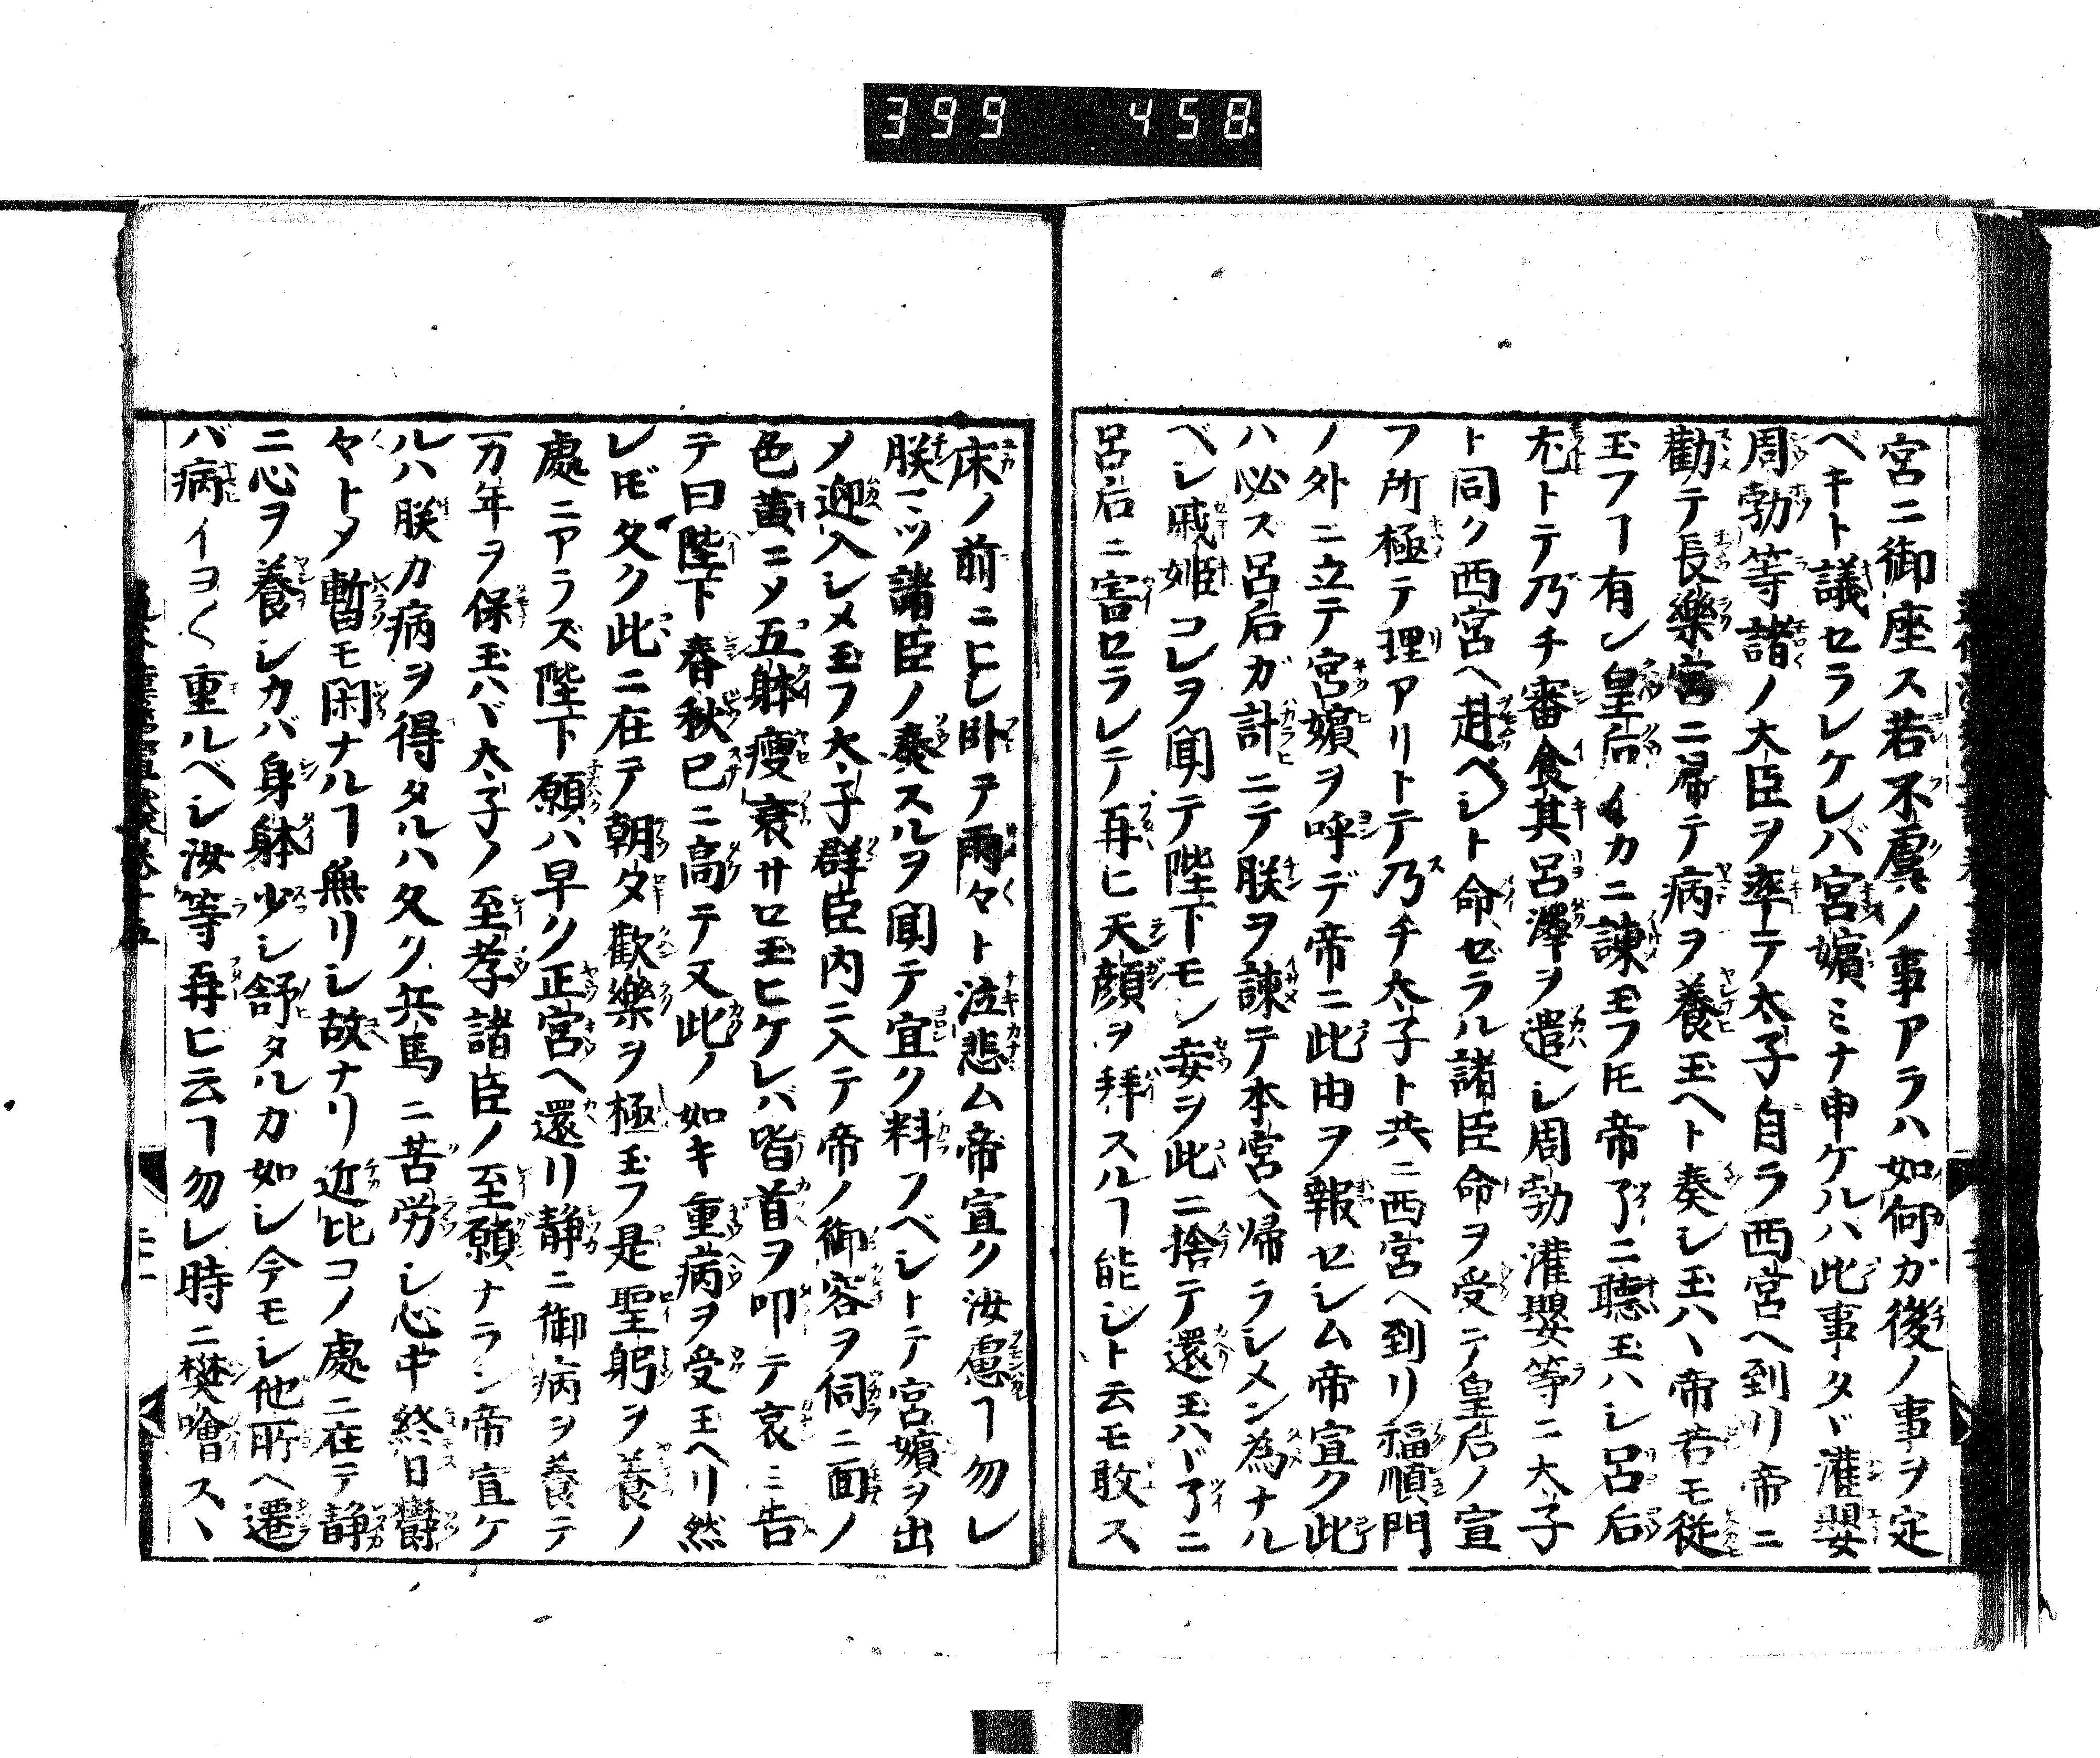 399 458
宮ニ御座ス若不虞ノ事アラハ如何カ後ノ事ヲ定
ベキト議セラレケレバ宮嬪ミナ申ケルハ此事タヾ灌嬰
周勃等諸ノ大臣ヲ率テ太子自ラ西宮ヘ到リ帝ニ
勸テ長樂宮ニ帰テ病ヲ養玉ヘト奏シ玉ハヽ帝若モ従
玉フヿ有ン皇后イカニ諫玉フ𪜈帝了ニ聴玉ハシ呂后
尤トテ乃チ審食其呂澤ヲ遣シ周勃灌嬰等ニ太子
ト同ク西宮ヘ赴ベシト命ゼラル諸臣命ヲ受テ皇后ノ宣
フ所極テ理アリトテ乃チ太子ト共ニ西宮ヘ到リ福順門
ノ外ニ立テ宮嬪ヲ呼デ帝ニ此由ヲ報セシム帝宣ク此
ハ必ス呂后ガ計ニテ朕ヲ諫テ本宮ヘ帰ラシメン為ナル
ベレ戚姫コレヲ聞テ陛下モシ妾ヲ此ニ捨テ還玉ハヾ了ニ
呂后ニ害セラレテ再ヒ天顔ヲ拝スルヿ能シト云モ敢ス
床ノ前ニヒレ臥テ雨々ト泣悲ム帝宣ク汝慮ヿ勿レ
朕ミツ諸臣ノ奏スルヲ聞テ宜ク料フベシトテ宮嬪ヲ出
メ迎入レメ玉フ太子群臣内ニ入テ帝ノ御容ヲ伺ニ面ノ
色黄ニメ五躰痩衰サセ玉ヒケレバ皆首ヲ叩テ哀ミ告
テ曰陛下春秋已ニ高テ又此ノ如キ重病ヲ受玉ヘリ然
レ𪜈久ク此ニ在テ朝夕歡樂ヲ極玉フ是聖躬ヲ養ノ
處ニアラズ陛下願ハ早ク正宮ヘ還リ静ニ御病ヲ養テ
一万年ヲ保玉ハヾ太子ノ至孝諸臣ノ至願ナラン帝宣ケ
ルハ朕カ病ヲ得タルハ久ク兵馬ニ苦労シ心中終日欝
々トメ暫モ閑ナルヿ無リシ故ナリ近比コノ處ニ在テ静
ニ心ヲ養シカバ身躰少シ舒タルカ如シ今モシ他所ヘ遷
バ病イヨ〱重ルベシ汝等再ビ云ヿ勿レ時ニ樊噲スヽ